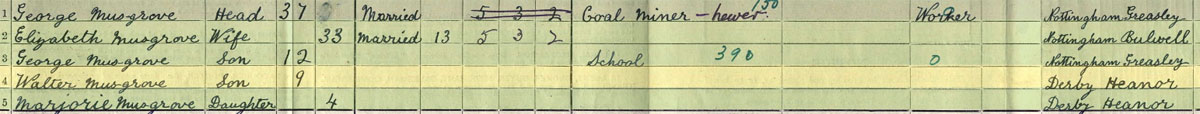 1 George Musgrove Head 37 Married 5 3 2 Coal Miner - hewer. 150 Worker Nottingham Greasley
2 Elizabeth Musgrove Wife 33 Married 13 5 3 2 Nottingham Bulwell
3 George Musgrove Son 12 School 390 0 Nottingham Greasley
4 Walter Musgrove Son 9 Derby Heanor
5 Marjorie Musgrove Daughter 4 Derby Heanor